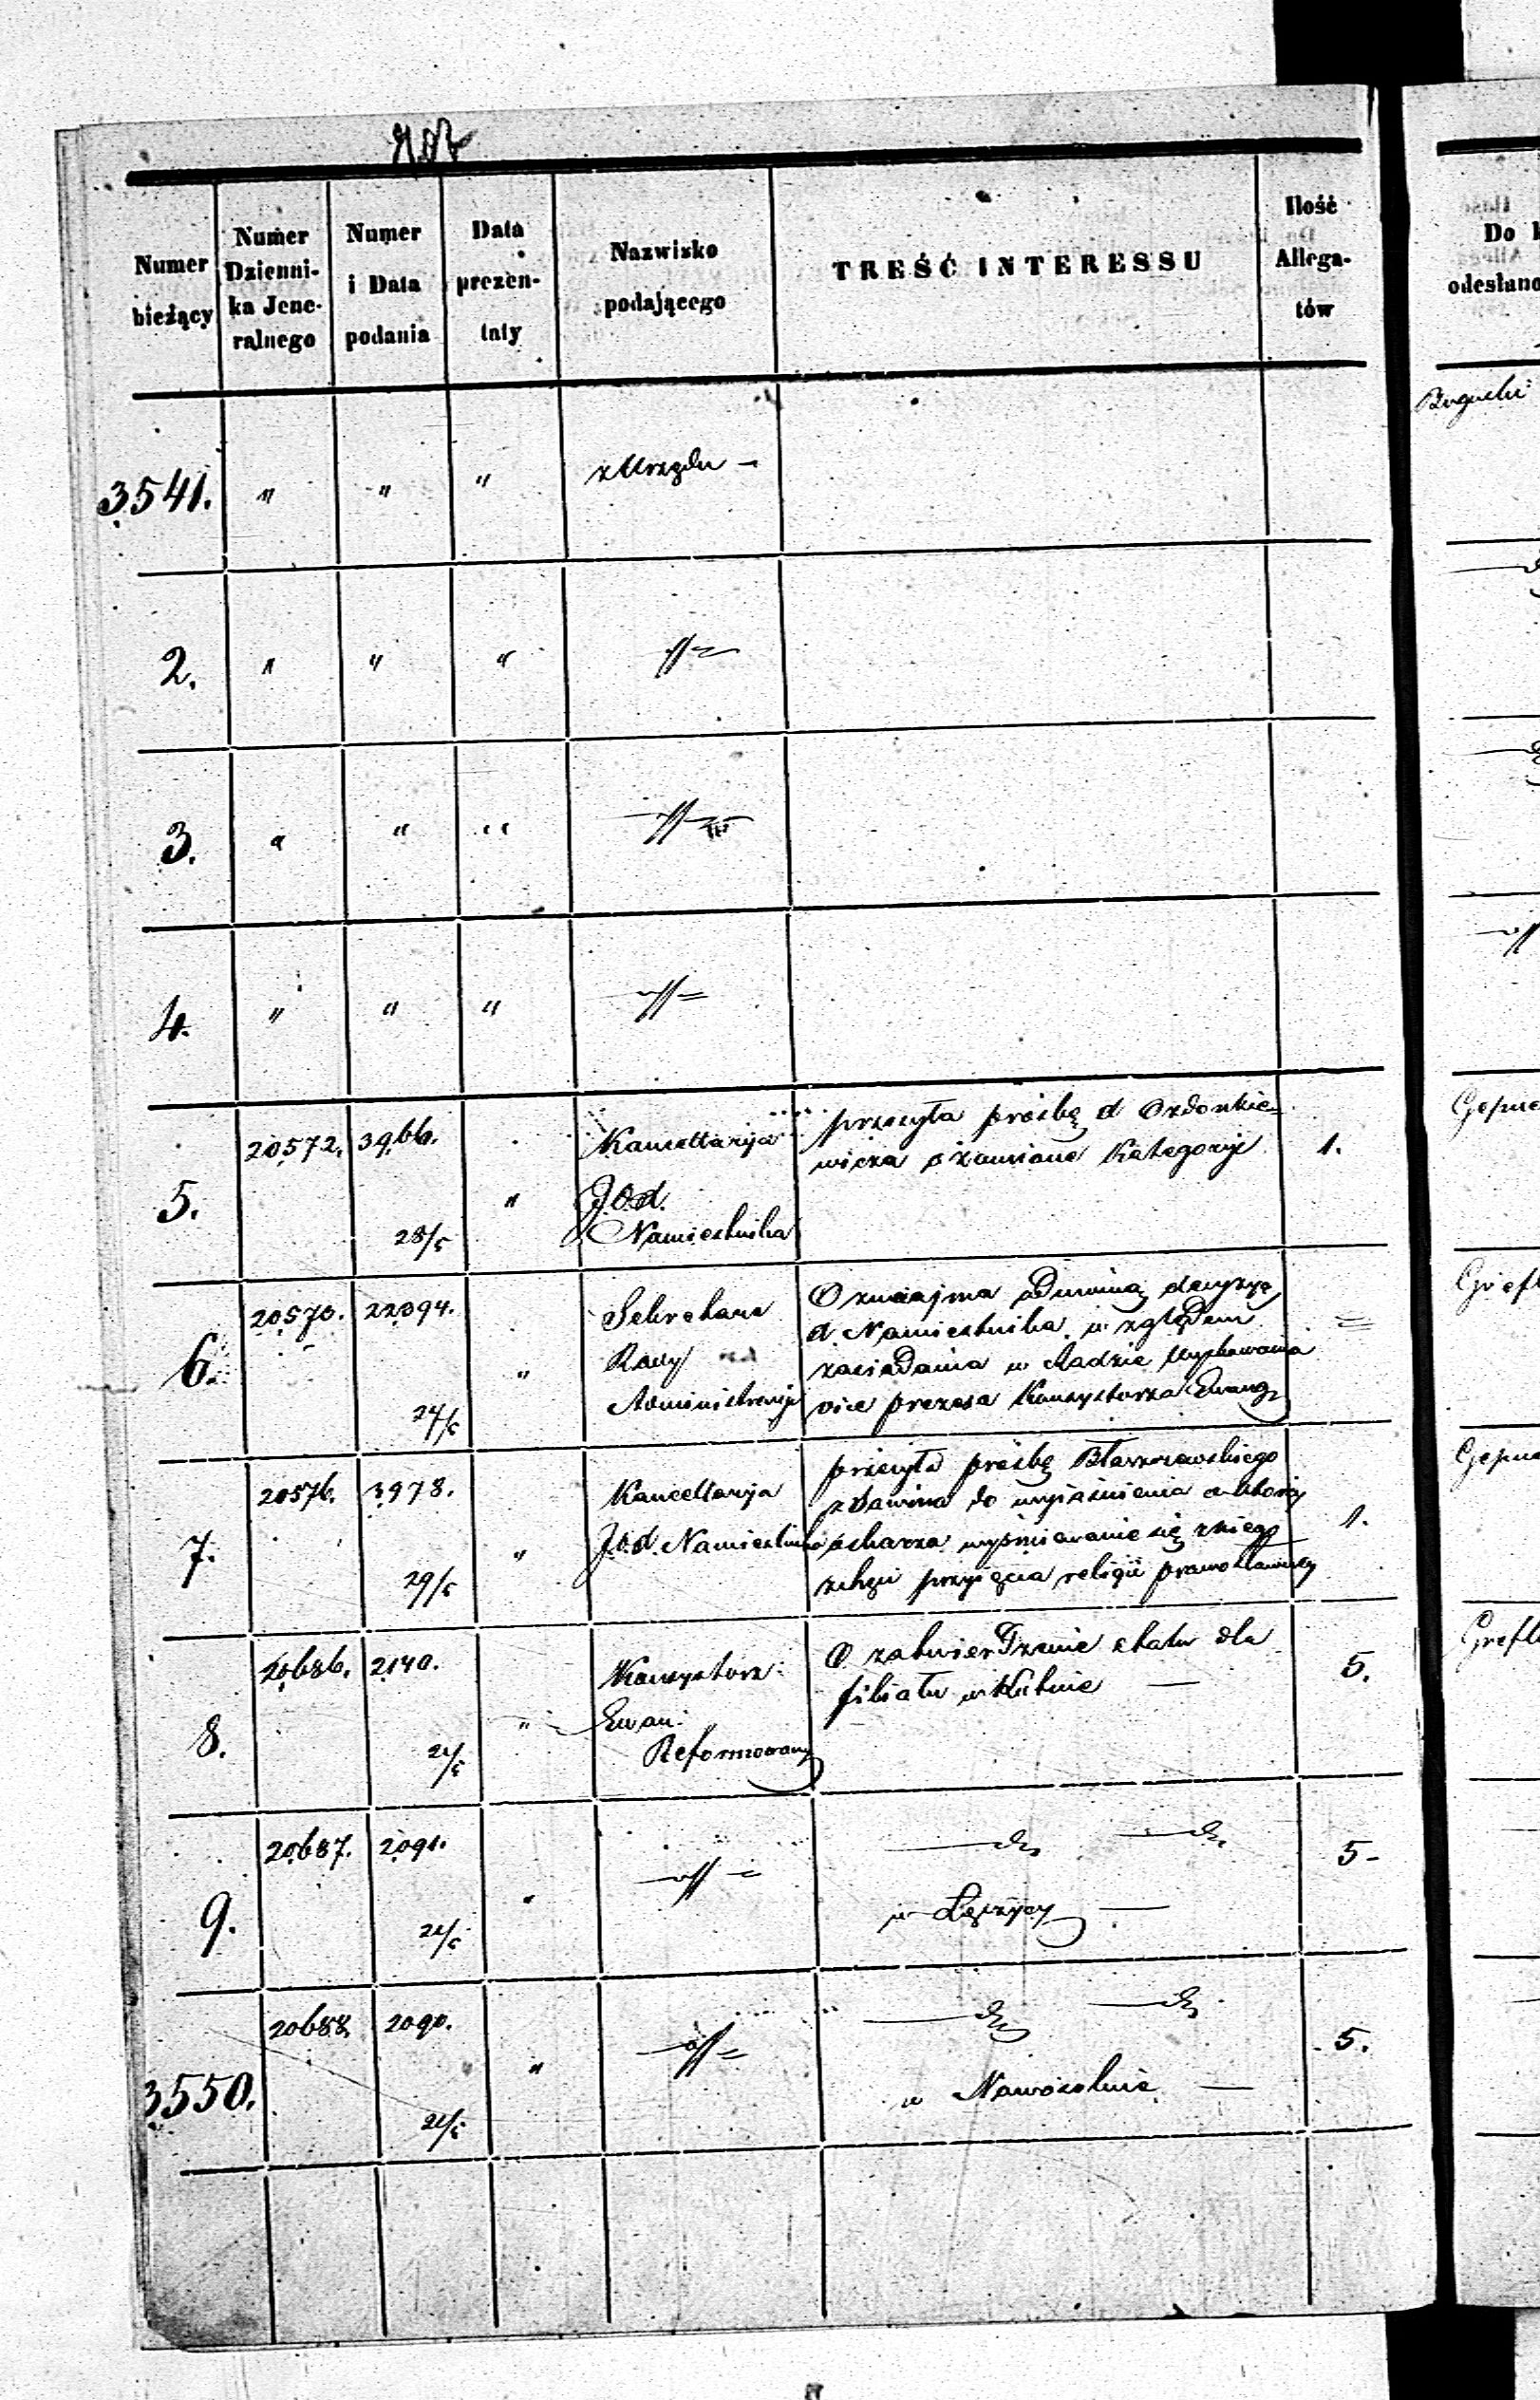 Numer bieżący
Numer Dzienni-ka Jene-ralnego
Numer i Data podania
Data prezen-taty
Nazwisko podającego
TREŚĆ INTERESSU
Ilość Allega-tów
Do
odesłano
3541. " " " z Urzędu —
2. " " "
3. " " "
4. " " "
5. 20572. 3966. 28/5 "
Kancellarija
J.O.d.
Namiestnika
przesyła prośbę d Ordonkie-
wicza o zamianę Kategoryi
1.
6. 20570. 22094. 24/5 "
Sekretarz
Rady
Administracyj
Oznajmia odmowną decyzyę
d. Namiestnika względem
zasiadania w Radzie Wychowania
vice prezesa Konsystorza Ewang
7. 20576. 3978. 29/5 "
Kancellarija
J.O.d. Namiestnika
przesyła prośbę Błaszczewskiego
do wyjaśnienia
wyśmiewanie się z niego
z chęci przyjęcia religii prawosławnej
1.
8. 20686. 2140. 21/5 "
Konsystorz
Ewan:
Reformowany
O zatwierdzenie etatu dla
filiału w Kutnie —
5.
9. 20687. 2091. 21/5 "
w Łęczycy —
5-
3550. 20688 2090. 21/5 "
w Nawosolnie —
5.